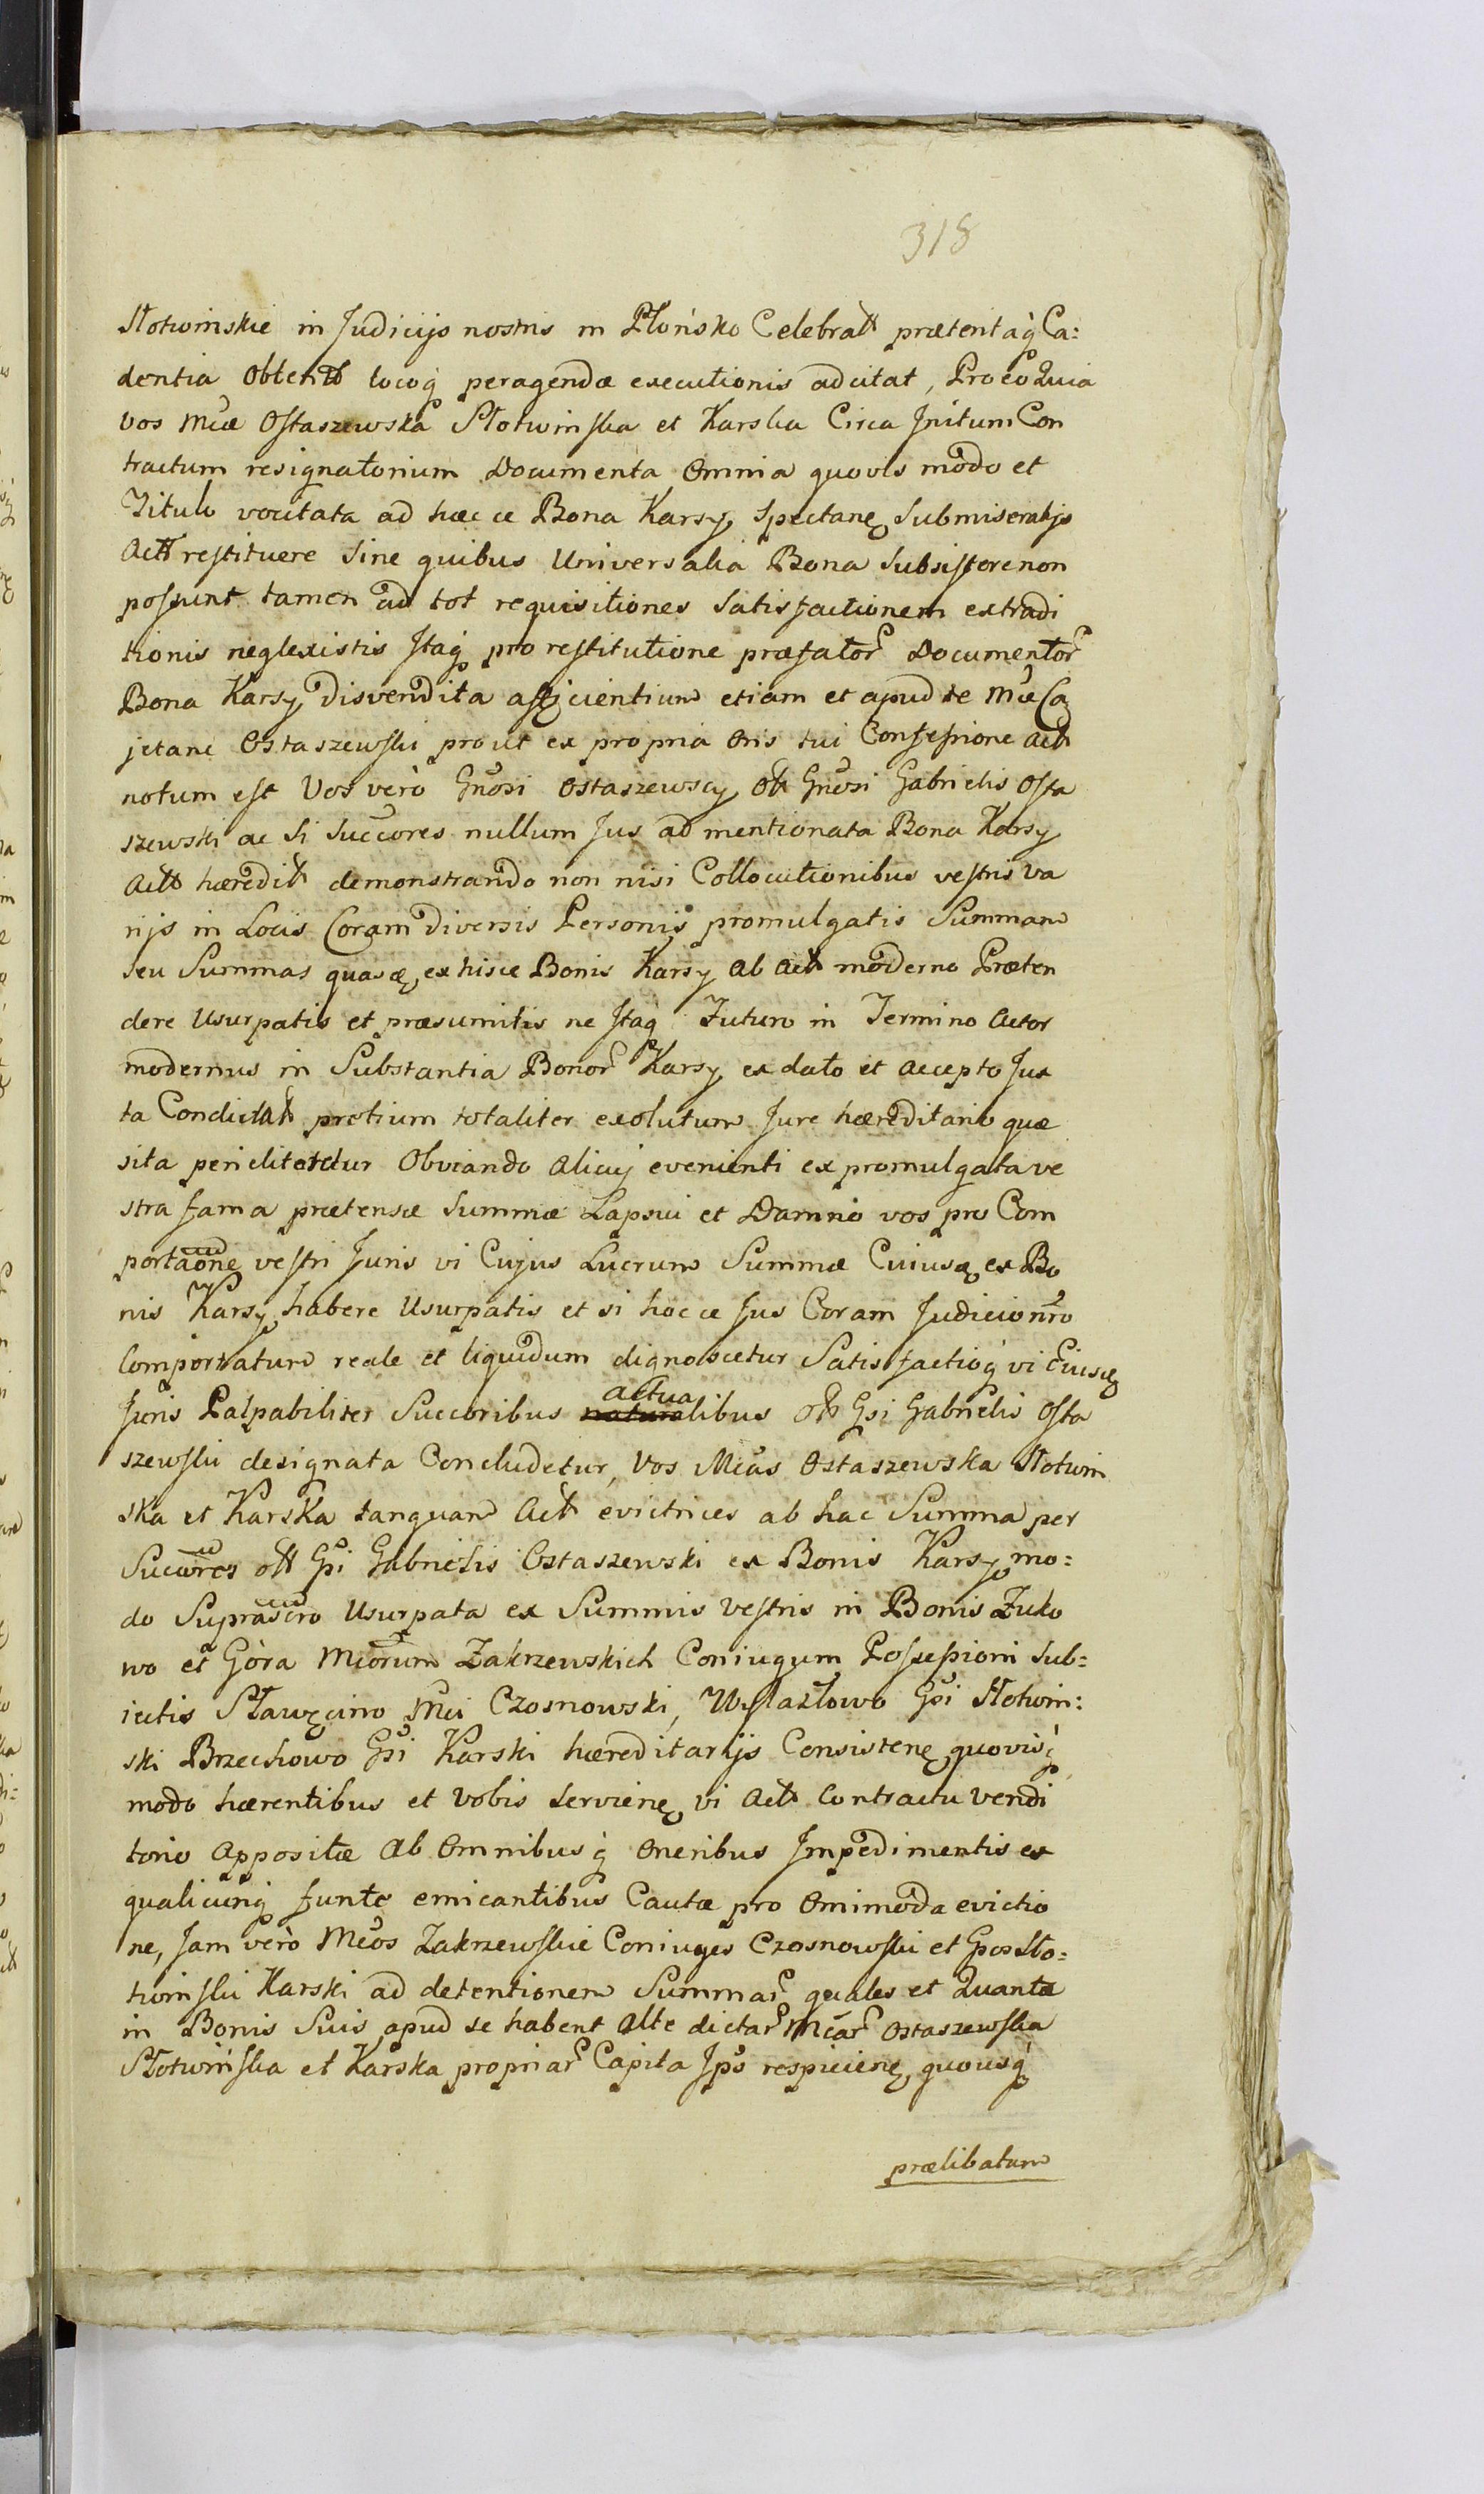 318
Słotwinskie in Judicijs nostris in Płońsko Celebratt prætentaq́ Ca:
dentia obtentt locoq́ peragendæ executionis adcitat, Pro eo Quia
vos Mcæ Ostaszewska Słotwinska et Karska Circa Initum Con
tractum resignatorium Documenta Omnia quovis modo et
Titulo vocitata ad hæc ce Bona Karsy, Spectanę Submiseratis
Actt restituere Sine quibus Universalia Bona Subsistere non
possunt tamen ad tot requisitiones Satisfactionem extradi
tionis neglexistis Itaq́ pro restitutione præfator Documentor
Bona Karsy disvendita afficientium etiam et apud te Mce Ca
jetane Ostaszewski prout ex propria Oris tui Confessione Actt
notum est Vos verò Gnosi Ostaszewscy Ott Gnosi Gabrielis Osta
szewski ac Si Succores nullum Jus ad mentionata Bona Karsy
Actt hæreditt demonstrando non nisi Collocutionibus vestris va
rijs in Locis Coram Diversis Personis promulgatis Summam
Seu Summas quasę, ex hisce Bonis Karsy Ab Actt moderno Præten
dere Usurpatis et præsumitis ne Itaq́ Futuro in Termino Actor
modernus in Substantia Bonor Karsy ex dato et accepto Jux
ta Condictatt pretium totaliter exolutum Jure hæreditario quæ
sita periclitetur Obviando Alicuj evenienti ex promulgata ve
stra fama prætensæ Summæ Lapsui et Damno vos pro Com
portaone vestri Juris vi Cujus Lucrum Summæ Cuiusę, ex Bo
nis Karsy, habere Usurpatis et si hocce Jus Coram Judicio nro
Comportatum reale et liquidum dignoscetur Satisfactioq́ vi Eiusę
Juris Palpabiliter Succoribus naturalibus actua Ott Gsi Gabrielis Osta
szewski designata Concludetur, Vos Mcas Ostaszewska Słotwin
ska et Karska tanquam Actt evictrices ab hac Summa per
Succores ott Gsi Gabrielis Ostaszewski ex Bonis Karsy mo:
do Suprascro Usurpata ex Summis Vestris in Bonis Zuko
wo et Góra Mcorum Zakrzewskich Coniugum Possessioni Sub:
iectis Sławęcino Mci Czosnowski, Wysłazłowo Gsi Słotwin:
ski Brzechowo Gsi Karski hæreditarijs Consistenę, quovisq́
modo hærentibus et Vobis Servienę, vi Actt Contractu Vendi
torio Appositæ Ab Omnibusq́ Oneribus Impedimentis ex
qualicunq́ funte emicantibus Cautæ pro Omimoda evictio
ne, Jam verò Mcos Zakrzewskie Coniuges Czosnowski et Gsos Sło:
twinski Karski ad detentionem Summar quales et Quantæ
in Bonis Suis apud se habent Alte dictar Mcar Ostaszewska
Słotwińska et Karska propriar Capita Ips respicienę, quousq́
prælibatum